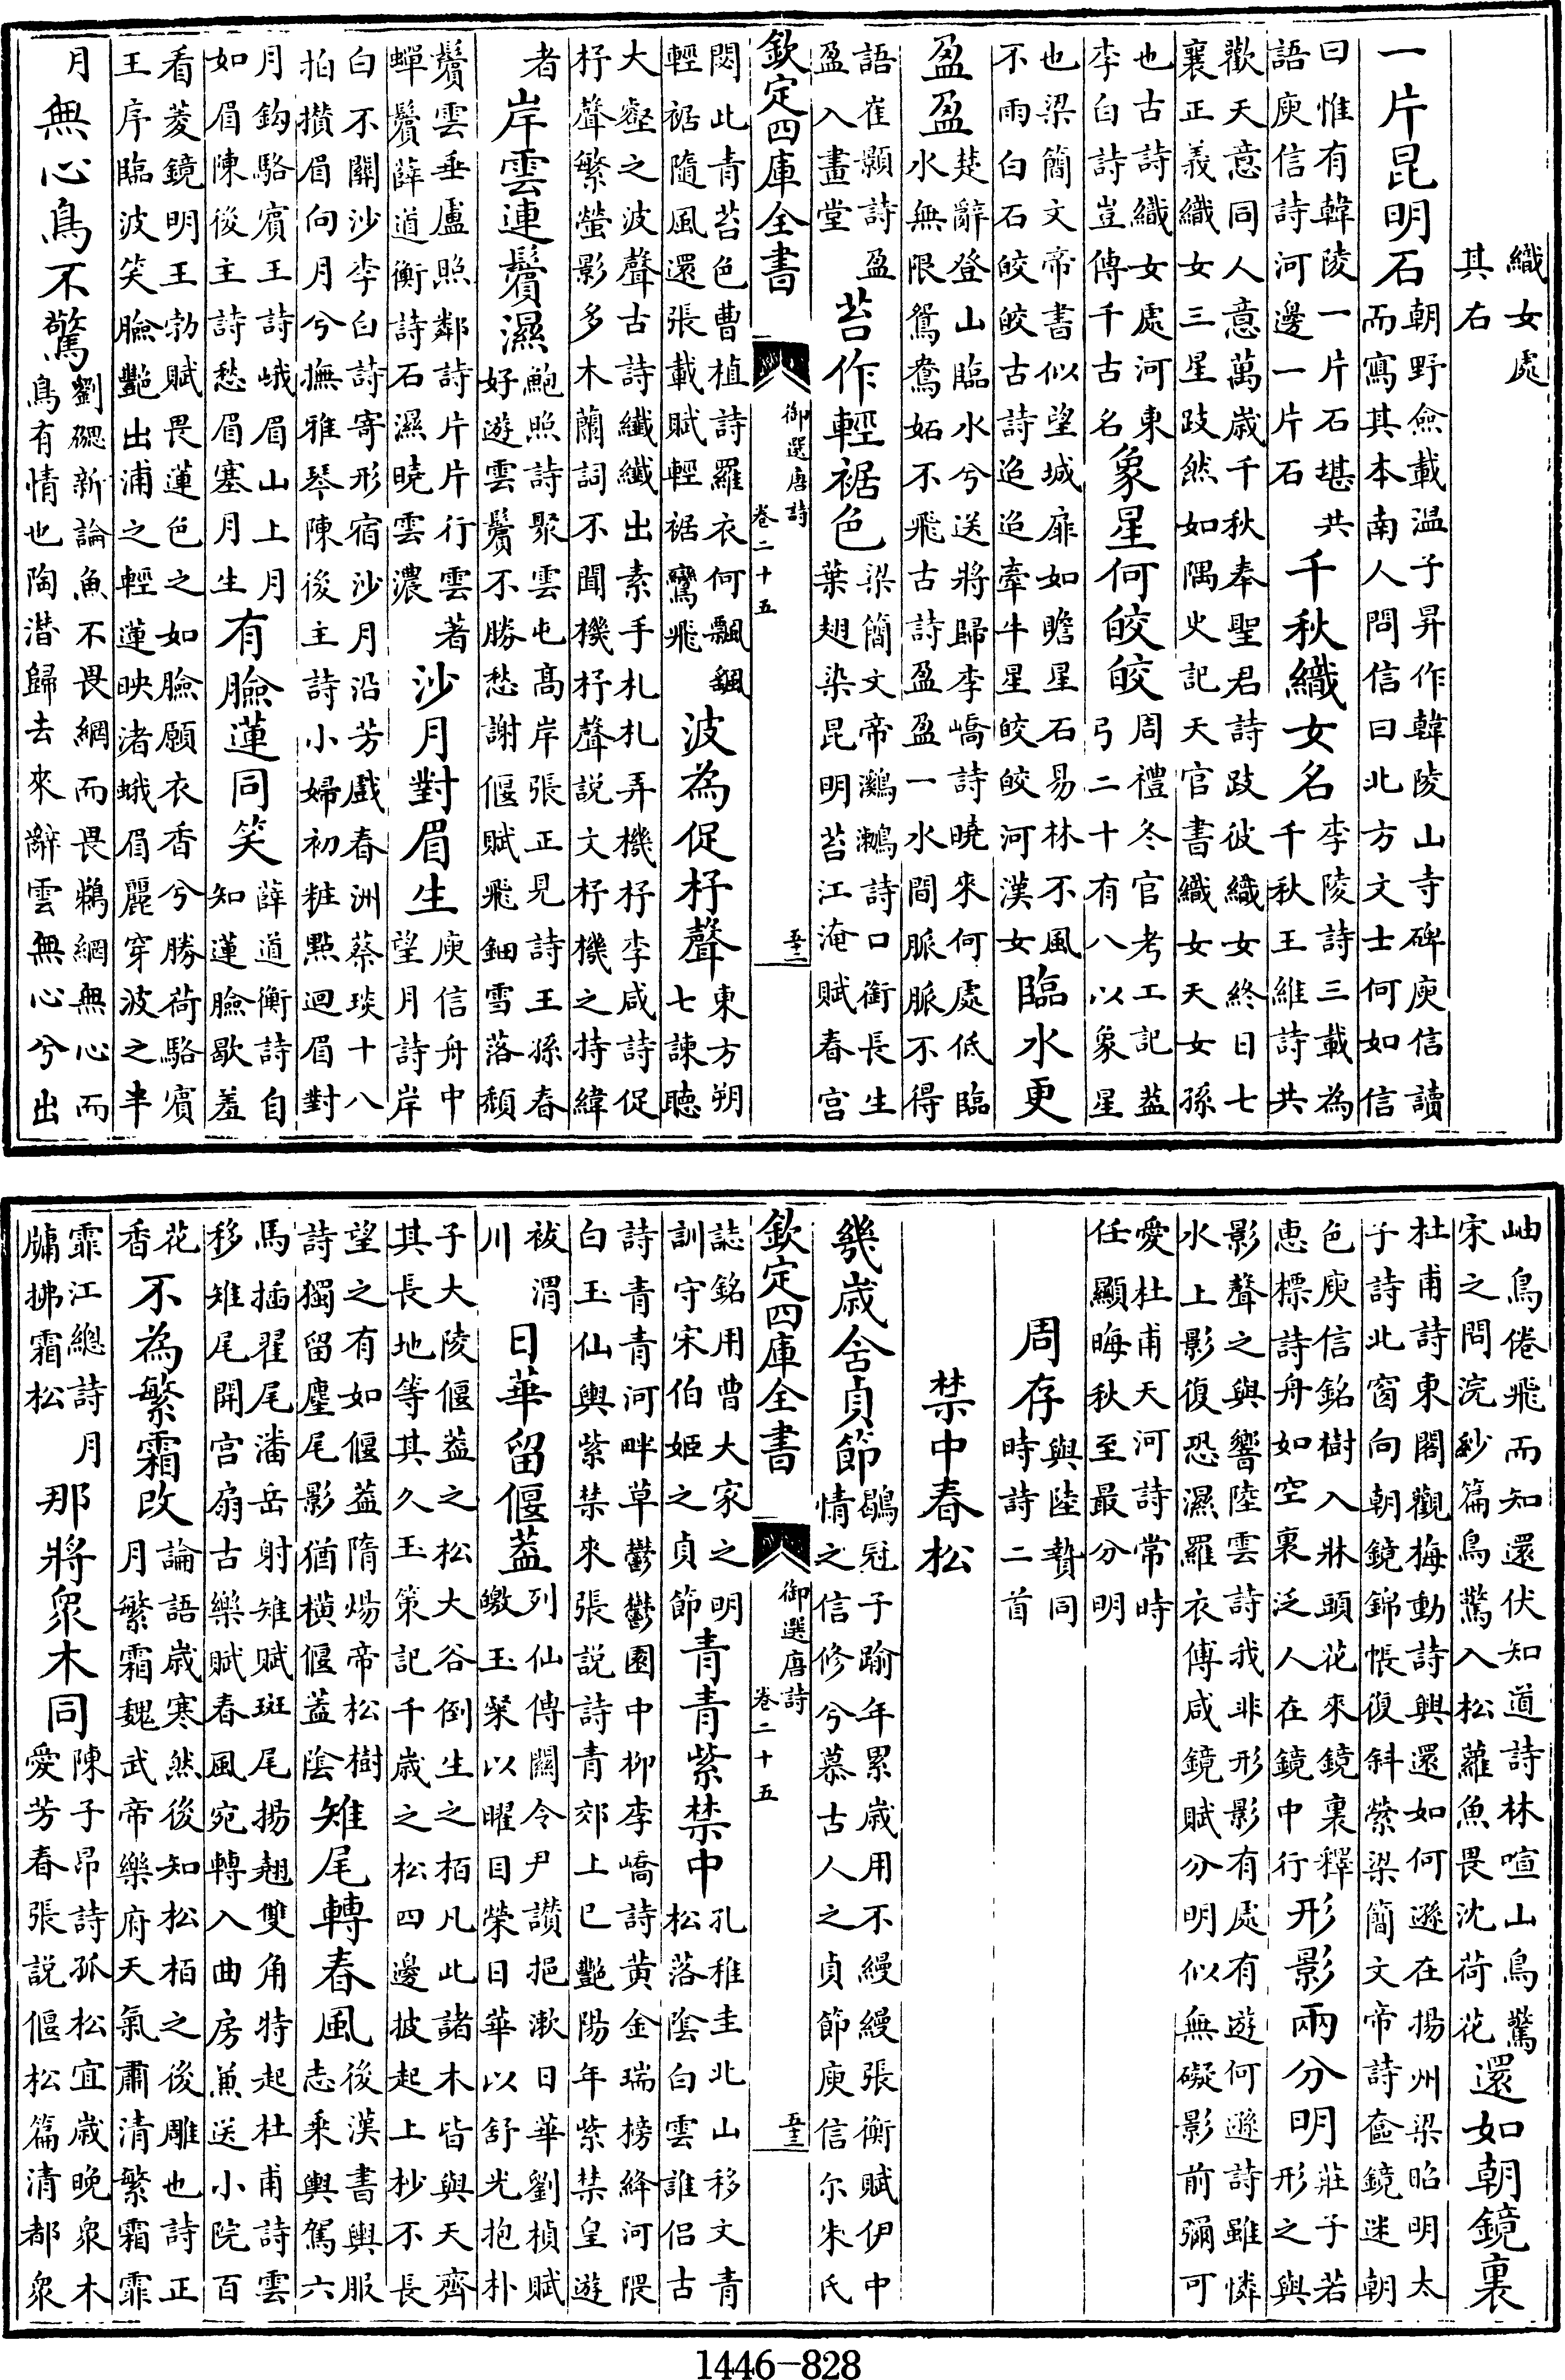 織女處
其右
一片昆明石朝野僉載溫子昇作韓陵山寺碑庾信讀
而寫其本南人問信曰北方文士何如信
曰惟有韓陵一片石堪共
語庾信詩河邊一片石千秋織女名李陵詩三載為
千秋王維詩共
歡天意同人意萬歲千秋奉聖君詩跂彼織女終日七
襄正義織女三星跂然如隅史記天官書織女天女孫
也古詩織女處河東
李白詩豈傳千古名象星何皎皎周禮冬官考工記蓋
弓二十有八以象星
也梁簡文帝書似望城扉如瞻星石易林不風
不雨白石皎皎古詩迢迢牽牛星皎皎河漢女臨水更
盈盈楚辭登山臨水兮送將歸李嶠詩曉來何處低臨
水無限鴛鴦妬不飛古詩盈盈一水間脈脈不得
語崔顥詩盈
盈入畫堂苔作輕裾色梁簡文帝鸂鶒詩口銜長生
葉翅染昆明苔江淹賦春宮
欽定四庫全書
御選唐詩
卷二十五
閟此青苔色曹植詩羅衣何飄飄
輕裾隨風還張載賦輕裾鸞飛波為促杼聲東方朔
七諫聽
大壑之波聲古詩纖纖出素手札札弄機杼李咸詩促
杼聲繁螢影多木蘭詞不聞機杼聲説文杼機之持緯
者岸雲連鬢濕鮑照詩聚雲屯高岸張正見詩王孫春
好遊雲鬢不勝愁謝偃賦飛鈿雪落頹
鬢雲垂盧照鄰詩片片行雲著
蟬鬢薛道衡詩石濕曉雲濃沙月對眉生庾信舟中
望月詩岸
白不關沙李白詩寄形宿沙月沿芳戲春洲蔡琰十八
拍攢眉向月兮撫雅琴陳後主詩小婦初粧點迴眉對
月鈎駱賓王詩峨眉山上月
如眉陳後主詩愁眉塞月生有臉蓮同笑薛道衡詩自
知蓮臉歇羞
看菱鏡明王勃賦畏蓮色之如臉願衣香兮勝荷駱賓
王序臨波笑臉艷出浦之輕蓮映渚蛾眉麗穿波之半
月無心鳥不驚劉勰新論魚不畏網而畏鵜網無心而
鳥有情也陶潛歸去來辭雲無心兮出
岫鳥倦飛而知還伏知道詩林喧山鳥驚
宋之問浣紗篇鳥驚入松蘿魚畏沈荷花還如朝鏡裏
杜甫詩東閣觀梅動詩興還如何遜在揚州梁昭明太
子詩北窗向朝鏡錦帳復斜縈梁簡文帝詩奩鏡迷朝
色庾信銘樹入牀頭花來鏡裏釋
惠標詩舟如空裏泛人在鏡中行形影兩分明莊子若
形之與
影聲之與響陸雲詩我非形影有處有遊何遜詩雖憐
水上影復恐濕羅衣傅咸鏡賦分明似無礙影前彌可
愛杜甫天河詩常時
任顯晦秋至最分明
周存與陸贄同
時詩二首
禁中春松
幾歲含貞節鶡冠子踰年累歲用不縵縵張衡賦伊中
情之信修兮慕古人之貞節庾信尔朱氏
欽定四庫全書
御選唐詩
卷二十五
誌銘用曹大家之明
訓守宋伯姬之貞節青青紫禁中孔稚圭北山移文青
松落陰白雲誰侶古
詩青青河畔草鬱鬱園中柳李嶠詩黄金瑞榜絳河隈
白玉仙輿紫禁來張説詩青郊上巳艷陽年紫禁皇遊
祓渭
川日華留偃蓋列仙傳關令尹讚挹漱日華劉楨賦
皦玉粲以曜目榮日華以舒光抱朴
子大陵偃蓋之松大谷倒生之栢凡此諸木皆與天齊
其長地等其久玉策記千歲之松四邊披起上杪不長
望之有如偃蓋隋煬帝松樹
詩獨留塵尾影猶橫偃蓋陰雉尾轉春風後漢書輿服
志乘輿駕六
馬插翟尾潘岳射雉賦斑尾揚翹雙角特起杜甫詩雲
移雉尾開宮扇古樂賦春風宛轉入曲房兼送小院百
花
香不為繁霜改論語歲寒然後知松栢之後雕也詩正
月繁霜魏武帝樂府天氣肅清繁霜霏
霏江總詩月
牖拂霜松那將衆木同陳子昂詩孤松宜歲晚衆木
愛芳春張説偃松篇清都衆
1446-828